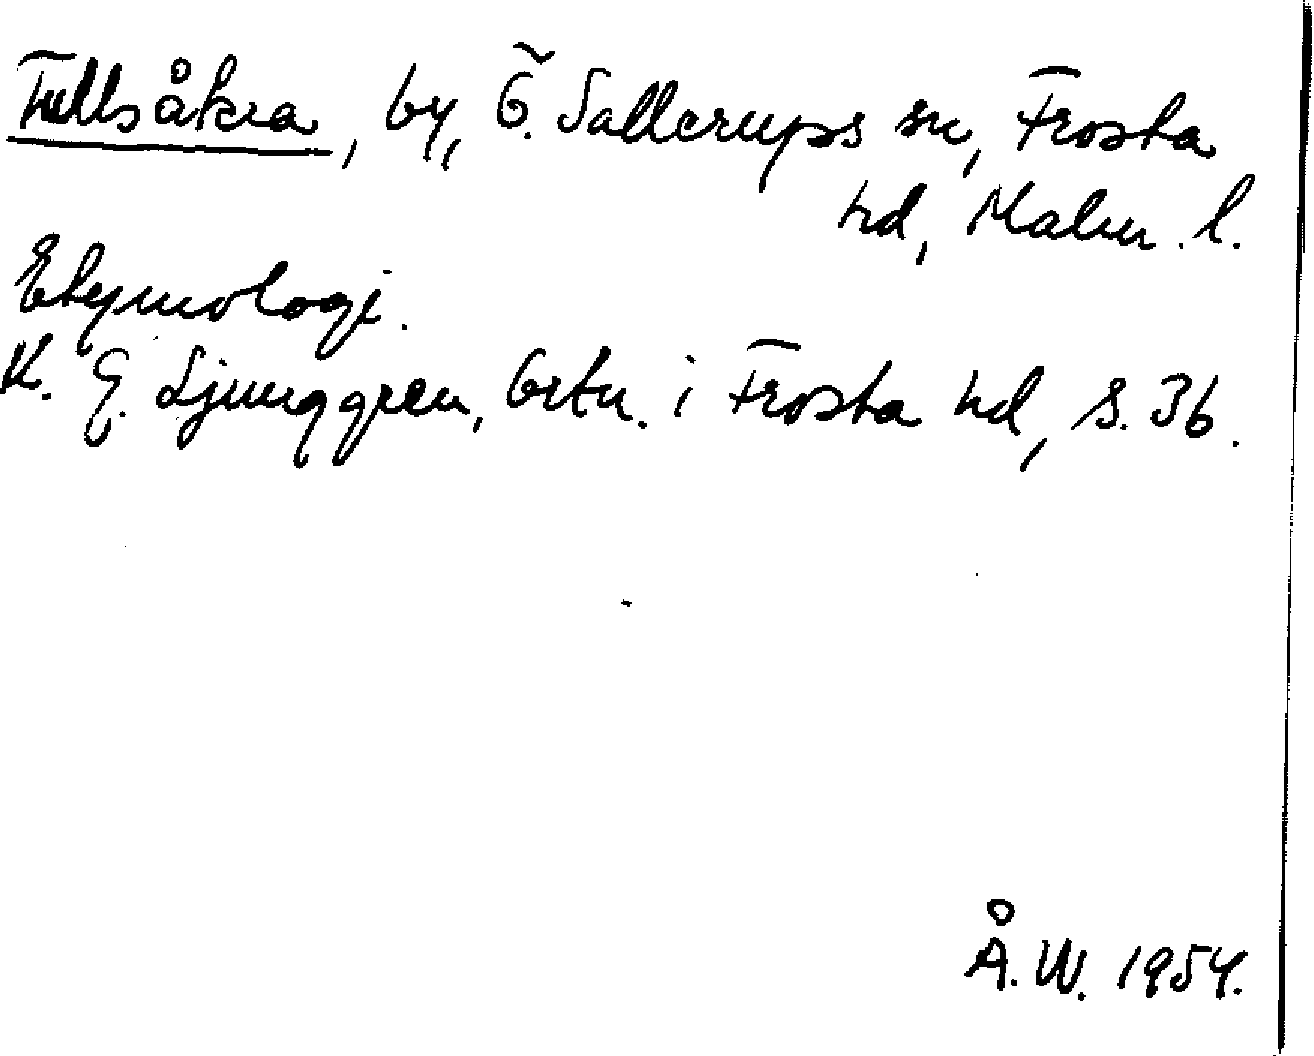 Fullsåkra, by, Ö. Sallerups sn, Frosta
hd, Malm. l.
Etymologi.
K. G. Ljunggren, Ortn. i Frosta hd, s. 36.
Å. W. 1954.